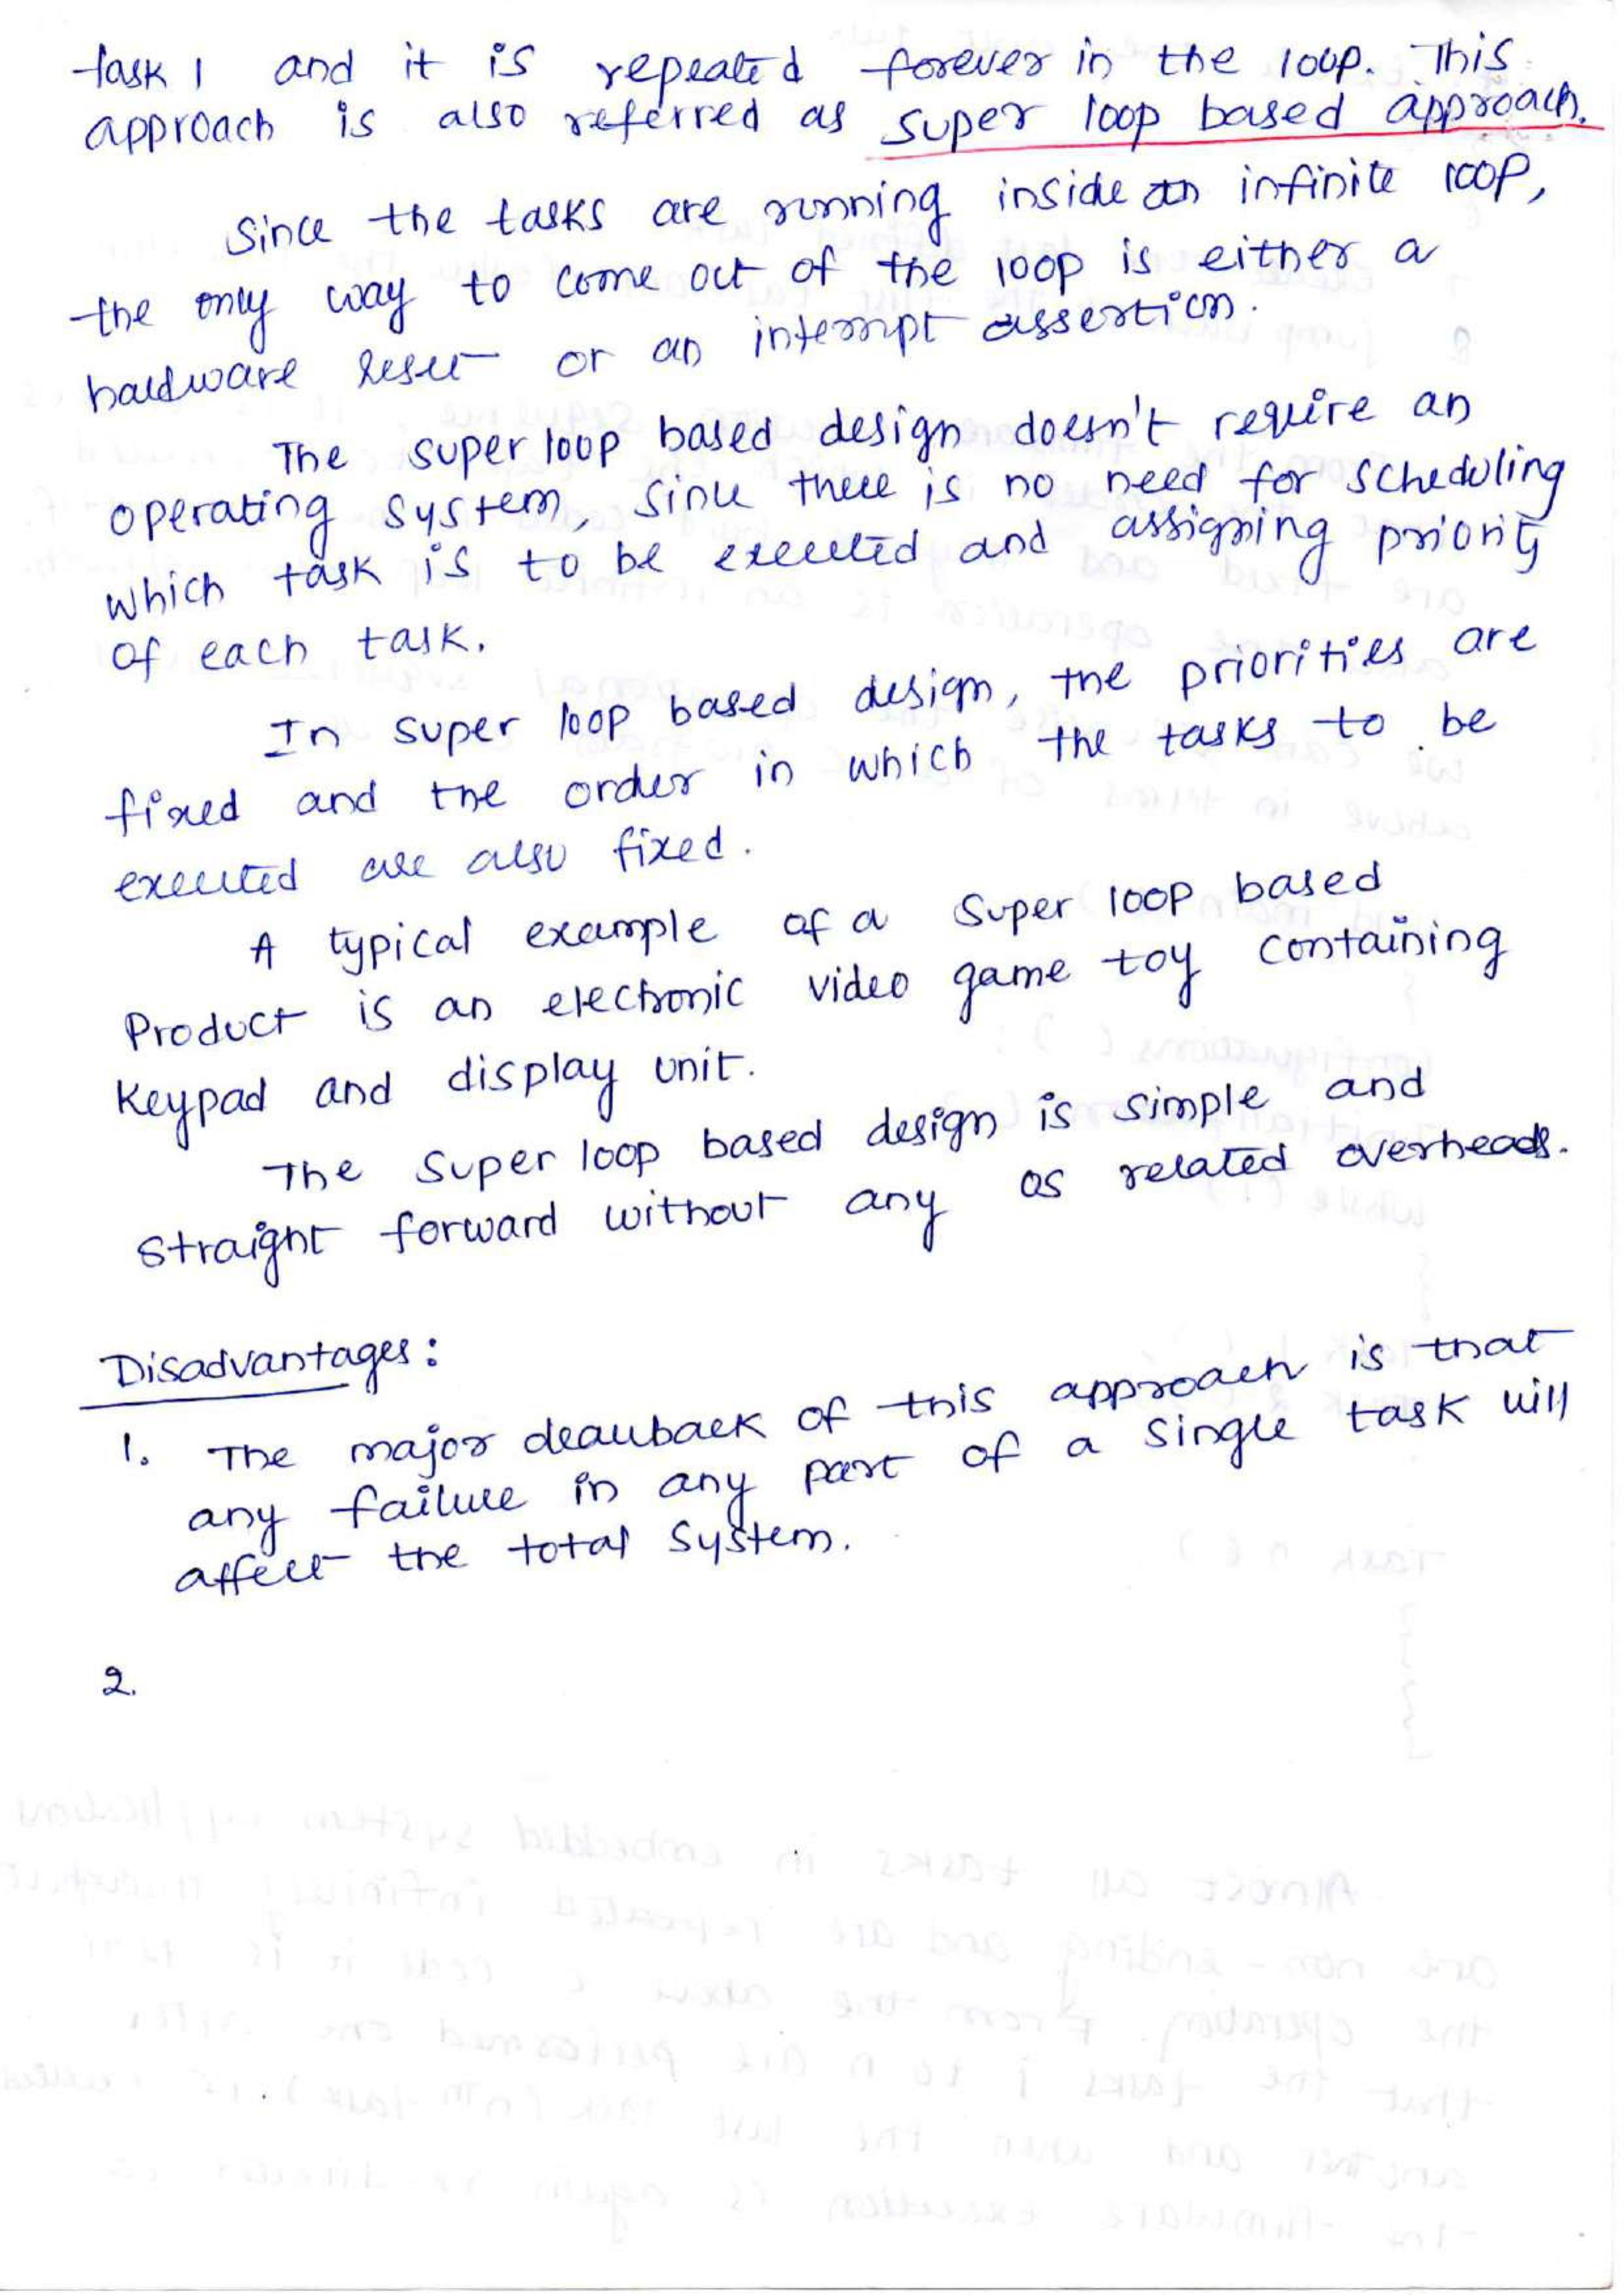 task 1 and it is repeated forever in the loop. This
approach is also referred as super loop based approach.
Since the tasks are running inside an infinite loop,
the only way to come out of the loop is either a
hardware reset or an interrupt assertion.
The super loop based design doesn't require an
operating system, since there is no need for scheduling
which task is to be executed and assigning priority
of each task.
In super loop based design, the priorities are
fixed and the order in which the tasks to be
executed are also fixed.
A typical example of a Super loop based
Product is an electronic video game toy containing
Keypad and display unit.
The Super loop based design is simple and
straight forward without any OS related overheads.
Disadvantages:
1. The major drawback of this approach is that
any failure in any part of a single task will
affect the total system.
2.